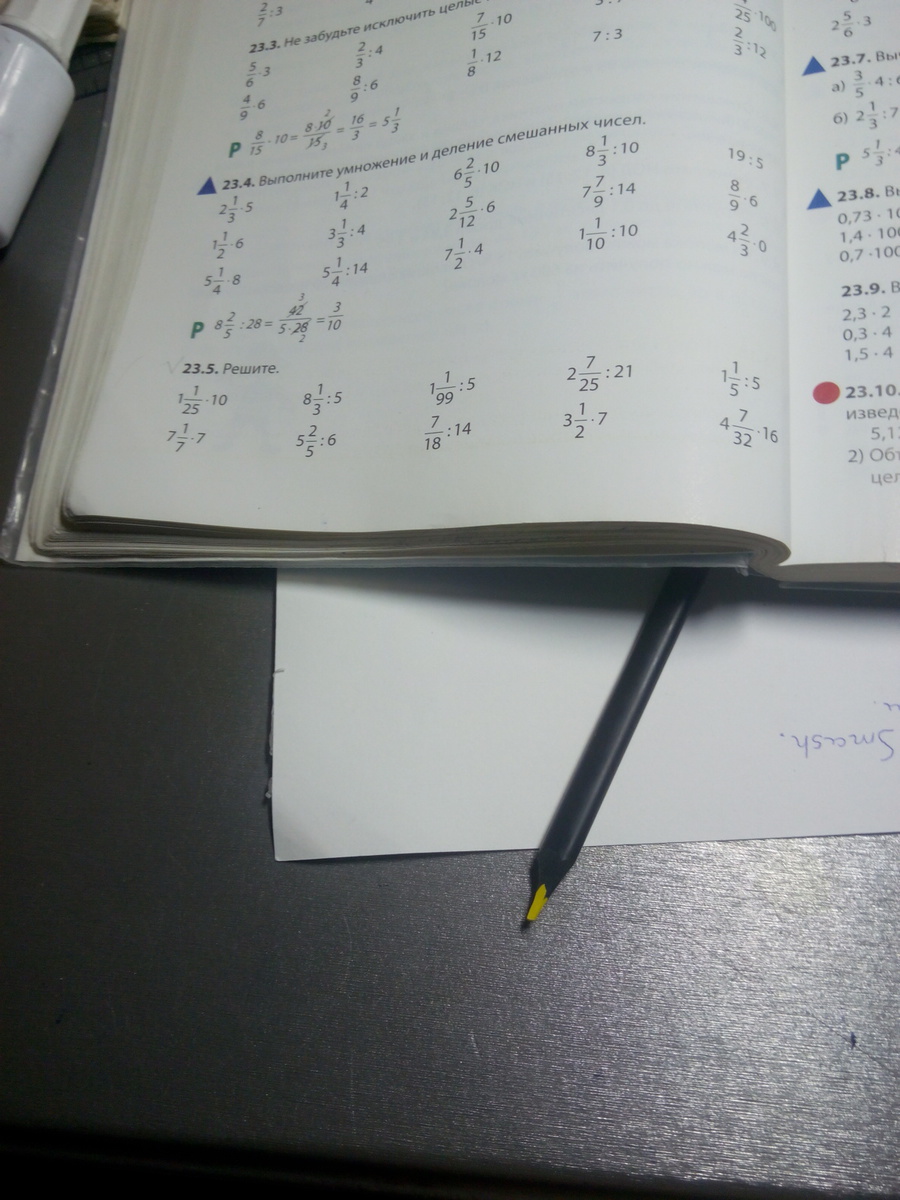 2/7 : 3
23.3. Не забудьте исключить целые
5/6 · 3 2/3 : 4 7/15 · 10 7 : 3 2/3 : 12
4/9 · 6 8/9 : 6 1/8 · 12
Р 8/15 · 10 = 8·10/15 = 16/3 = 5 1/3
23.4. Выполните умножение и деление смешанных чисел.
2 1/3 · 5 1 1/4 : 2 6 2/5 · 10 8 1/3 : 10 19 : 5
1 1/2 · 6 3 1/3 : 4 2 5/12 · 6 7 7/9 : 14 8/9 · 6
5 1/4 · 8 5 1/4 : 14 7 1/2 · 4 1 1/10 : 10 4 2/3 · 0
Р 8 2/5 : 28 = 42/5·28 = 3/10
23.5. Решите.
1 1/25 · 10 8 1/3 : 5 1 1/99 : 5 2 7/25 : 21 1 1/5 : 5
7 1/7 · 7 5 2/5 : 6 7/18 : 14 3 1/2 · 7 4 7/32 · 16
2 5/6 · 3
23.7.
а) 3/5 · 4 :
б) 2 1/3 : 7
Р 5 1/3 : 4
23.8.
0,73 · 10
1,4 · 100
0,7 · 100
23.9.
2,3 · 2
0,3 · 4
1,5 · 4
23.10.
извед
5,1
2) Об
це
Smash.